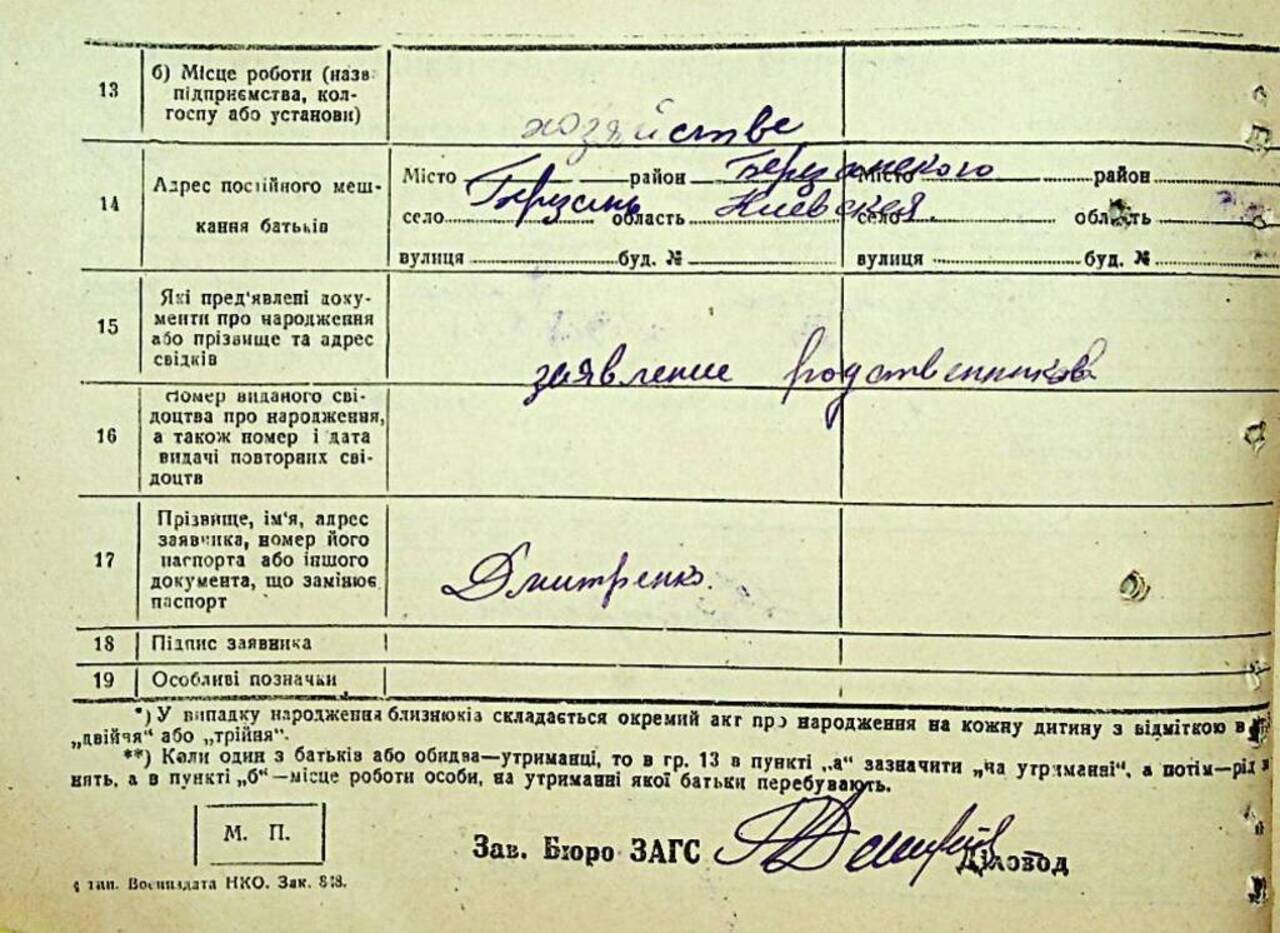 13
б) Місце роботи (назв
підприємства, кол-
госпу або установи)
хозяйстве
14
Адрес постійного меш-
кання батьків
Місто район Березанского Місто район
село Березань область Киевская село область
вулиця буд. № вулиця буд. №
15
Які пред'явлені доку-
менти про народження
або прізвище та адрес
свідків
заявление родственников
16
Номер виданого сві-
доцтва про народження,
а також номер і дата
видачі повторних сві-
доцтв
17
Прізвище, ім'я, адрес
заявника, номер його
паспорта або іншого
документа, що замінює
паспорт
Дмитренко.
18 Підпис заявника
19 Особливі позначки
*) У випадку народження близнюків складається окремий акт про народження на кожну дитину з відміткою в
„двійня“ або „трійня“.
**) Коли один з батьків або обидва—утриманці, то в гр. 13 в пункті „а“ зазначити „на утриманні“, а потім—рід
нять, а в пункті „б“—місце роботи особи, на утриманні якої батьки перебувають.
М. П.
Зав. Бюро ЗАГС Діловод
тип. Воениздата НКО. Зак.